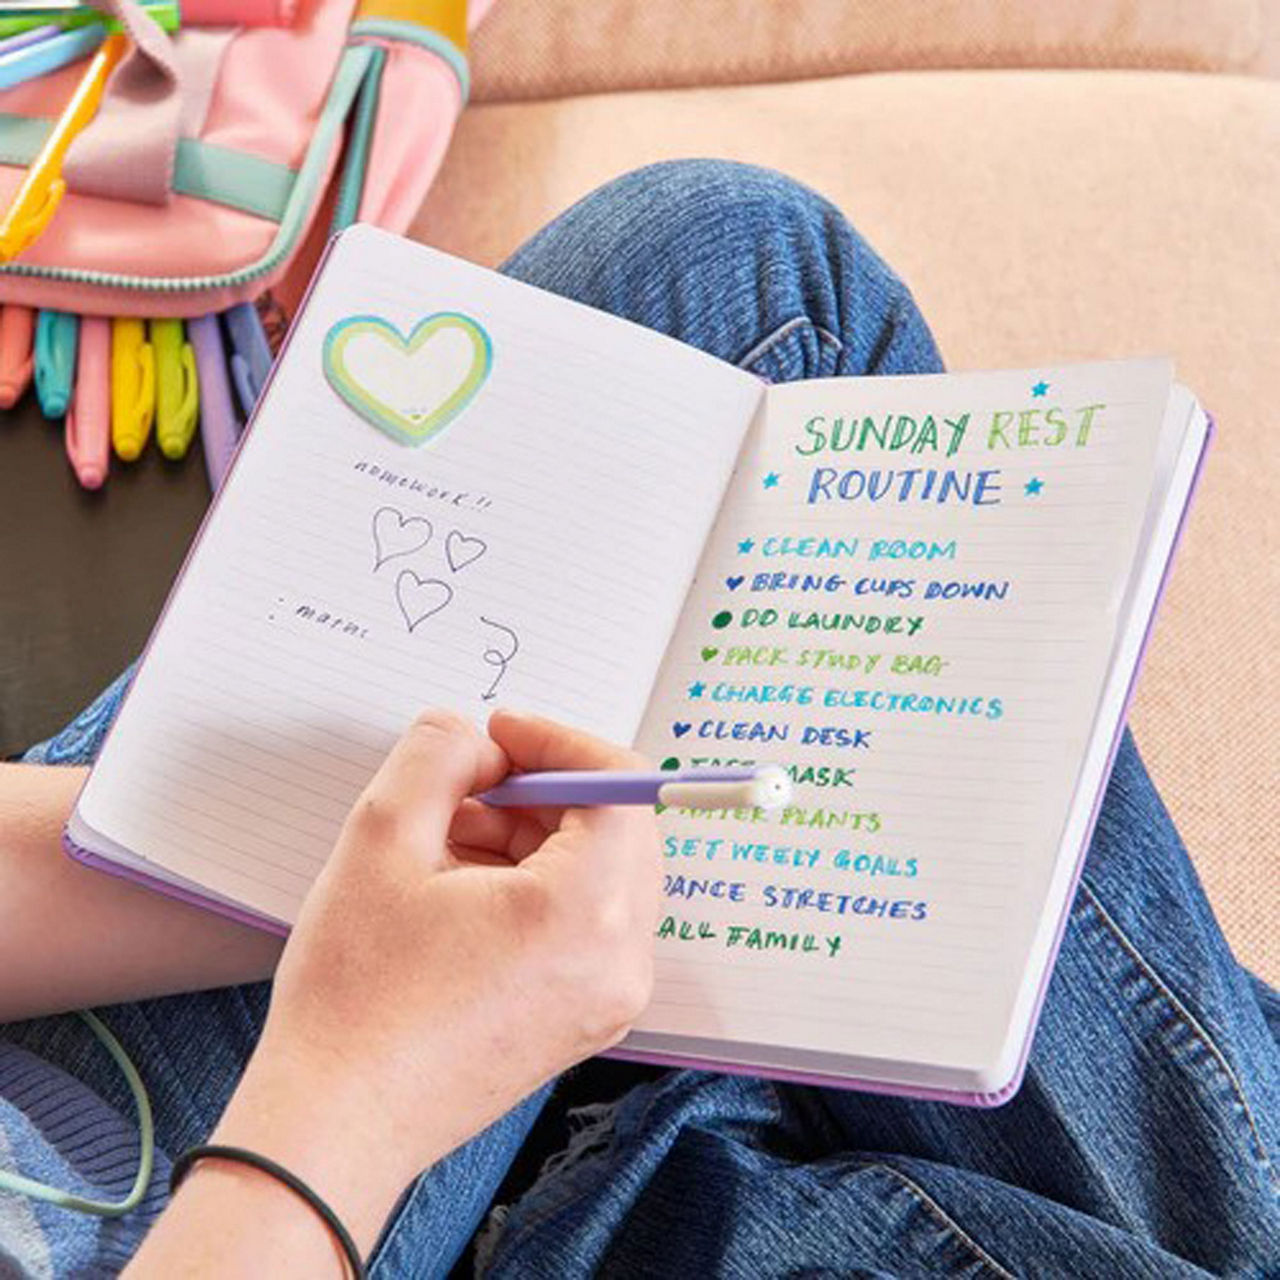 homework!!
: maths
SUNDAY REST
ROUTINE
CLEAN ROOM
BRING CUPS DOWN
DO LAUNDRY
PACK STUDY BAG
CHARGE ELECTRONICS
CLEAN DESK
MASK
WATER PLANTS
SET WEEKLY GOALS
DANCE STRETCHES
ALL FAMILY